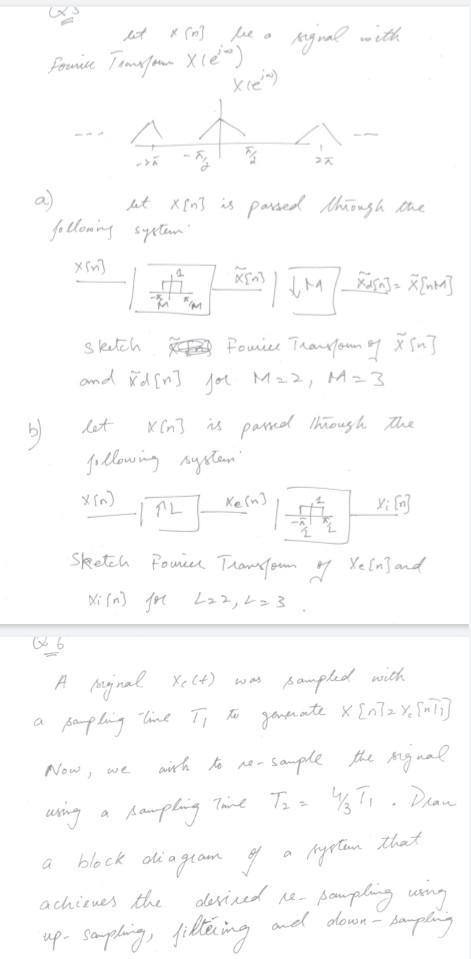 Q5
let x[n] be a signal with
Fourier Transform X(e^jω)
X(e^jω)
--- -2π -π/2 π/2 2π ---
a) let x[n] is passed through the
following system:
x[n] 1 -π/M π/M x̃[n] ↓M x̃d[n] = x̃[nM]
sketch Fourier Transform of x̃[n]
and x̃d[n] for M=2, M=3
b) let x[n] is passed through the
following system:
x[n] ↑L xe[n] 1 -π/L π/L xi[n]
Sketch Fourier Transform of xe[n] and
xi[n] for L=2, L=3.
Q6
A signal xc(t) was sampled with
a sampling time T1 to generate x[n]=xc[nT1]
Now, we wish to re-sample the signal
using a sampling time T2 = 4/3 T1. Draw
a block diagram of a system that
achieves the desired re-sampling using
up-sampling, filtering and down-sampling